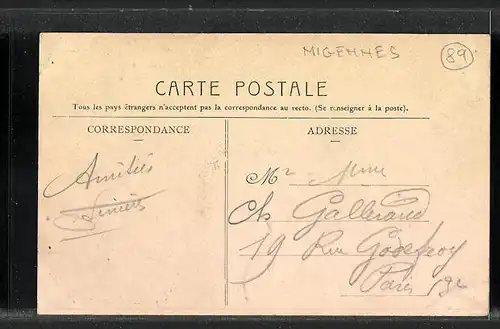 MIGENNES
89
CARTE POSTALE
Tous les pays étrangers n'acceptent pas la correspondance au recto. (Se renseigner à la poste).
CORRESPONDANCE
ADRESSE
Amitiés
M Mme
Ch Gallerand
19 Rue Godefroy
Paris